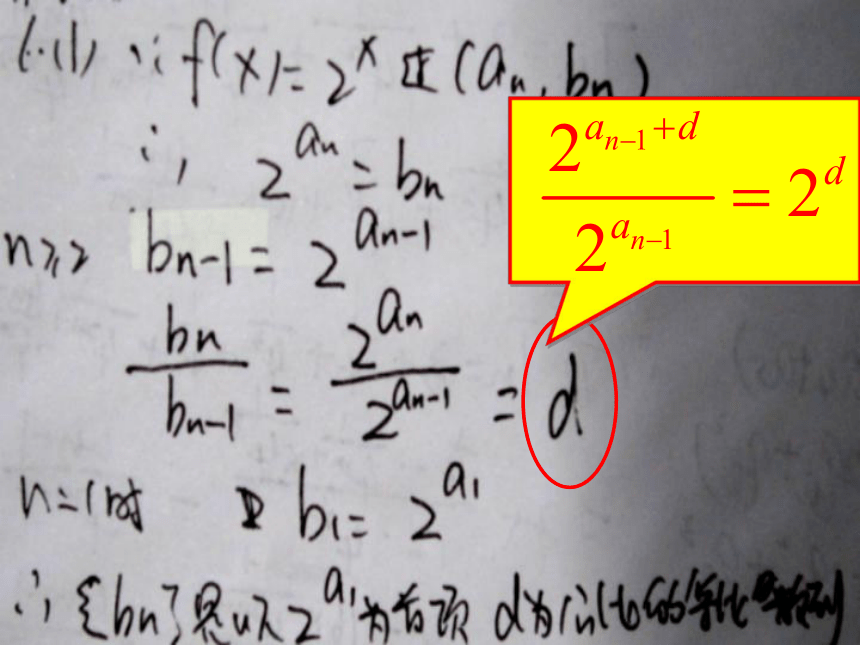 (1) ∵ f(x)=2^x 过(a_n, b_n)
∴ 2^{a_n} = b_n
\frac{2^{a_{n-1}+d}}{2^{a_{n-1}}} = 2^d
n≥2 b_{n-1} = 2^{a_{n-1}}
\frac{b_n}{b_{n-1}} = \frac{2^{a_n}}{2^{a_{n-1}}} = d
n=1时 b_1 = 2^{a_1}
∴ {b_n}是以2^{a_1}为首项 d为公比的等比数列